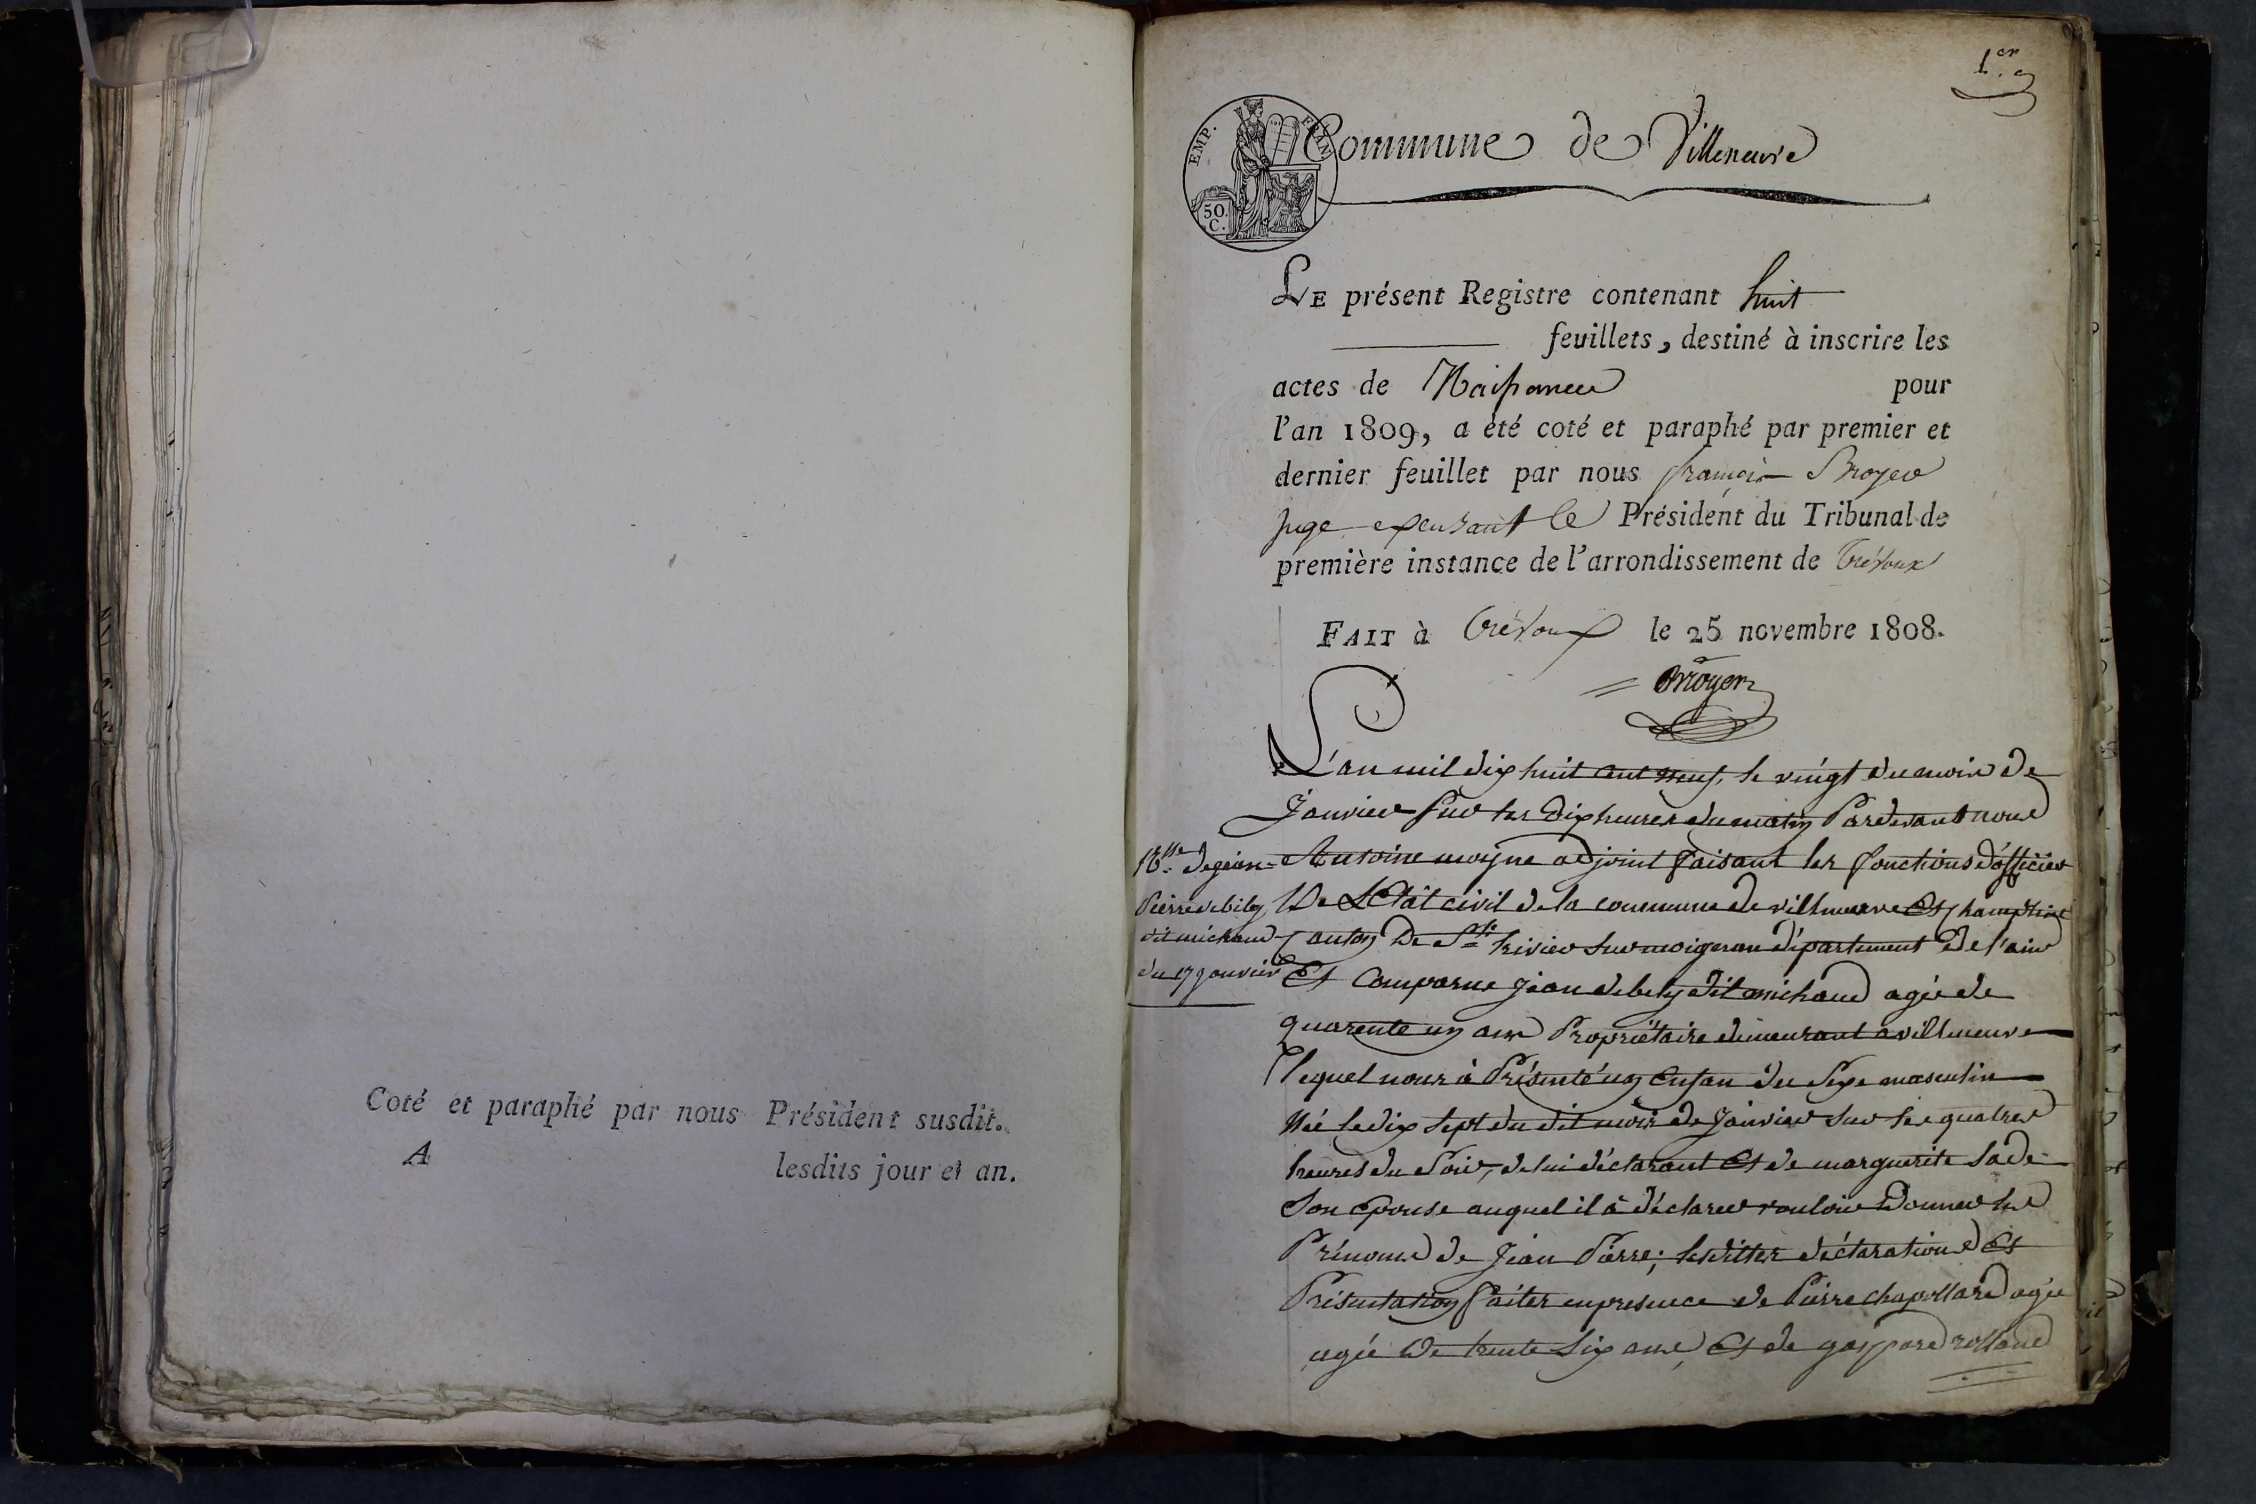 Coté et paraphé par nous Président susdit.
A lesdits jour et an.
1er
EMP. FRAN.
50.
C.
Commune de Villeneuve
LE présent Registre contenant huit
feuillets, destiné à inscrire les
actes de Naissance pour
l'an 1809, a été coté et paraphé par premier et
dernier feuillet par nous françois Broyer
juge exerçant le Président du Tribunal de
première instance de l'arrondissement de Trévoux
FAIT à Trévoux le 25 novembre 1808.
Broyer
L'an mil dix huit cent neuf, le vingt du mois de
Janvier sur les dix heures du matin Pardevant nous
Antoine moyne adjoint faisant les fonctions d'officier
De L'Etat civil de la commune de villeneuve Et champtein
Canton De St trivier sur moignan département de l'ain
Et Comparue jean debely dit michaud agée de
quarente un ans Propriétaire demeurant a villeneuve
lequel nous à Présenté un Enfan du Sexe masculin
Né le dix sept du dit mois de Janvier sur les quatres
heures du Soir, de lui déclarant Et de marguerite Lade
Son Epouse auquel il à déclaree vouloir Donner les
Prénoms de Jean Pierre; lesdittes déclarations Et
Présentation faites en presence de Pierre chapollard agée
agée De trente Six ans, Et de gaspard rolland
Nsse de jean-
Pierre debely
dit michaud
du 17 janvier